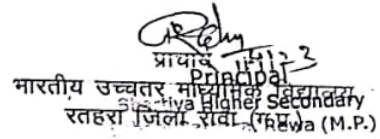 प्राचार्य
Principal
भारतीय उच्चतर माध्यमिक विद्यालय
Higher Secondary
रतहरा जिला रीवा (म.प्र.)
Rewa (M.P.)